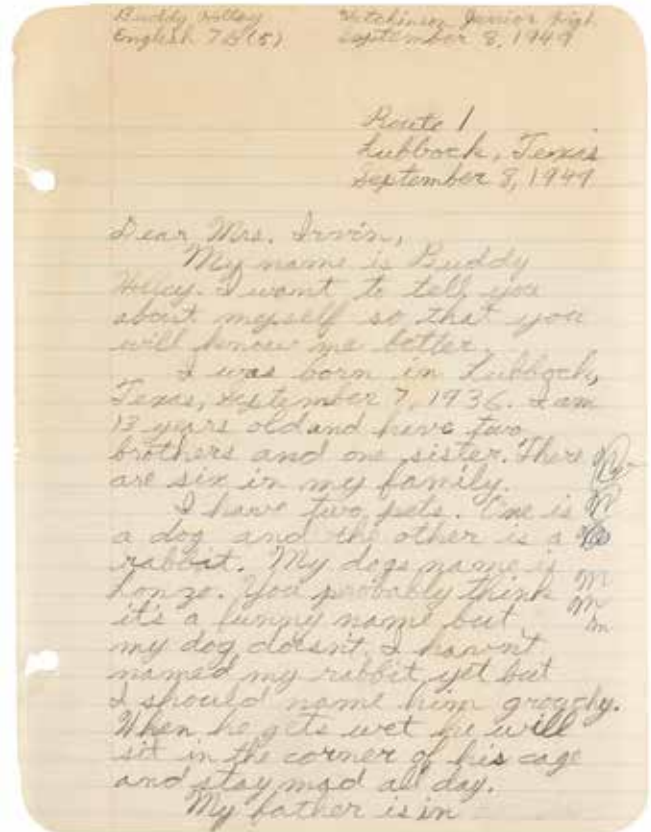 Buddy Holley Hutchinson Junior high
English 7B(5) September 8, 1949
Route 1
Lubbock, Texas
September 8, 1949
Dear Mrs. Irvin,
My name is Buddy
Holley. I want to tell you
about myself so that you
will know me better.
I was born in Lubbock,
Texas, September 7, 1936. I am
13 years old and have two
brothers and one sister. There
are six in my family.
I have two pets. One is
a dog and the other is a
rabbit. My dogs name is
You probably think
it's a funny name but
my dog doesn't. I havn't
named my rabbit yet but
I should name him grouchy.
When he gets wet he will
sit in the corner of his cage
and stay mad all day.
My father is in